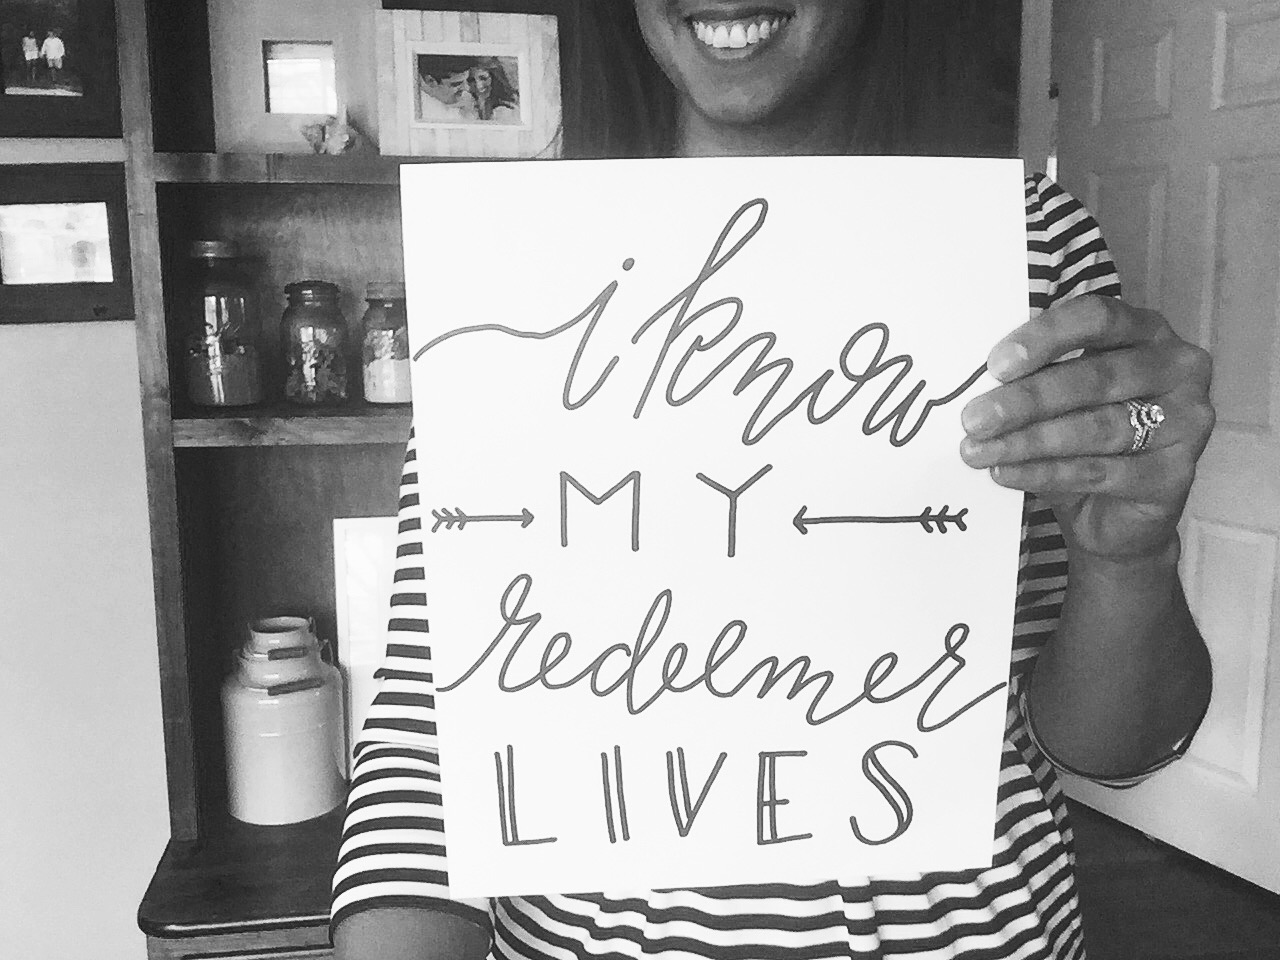 i know
MY
redeemer
LIVES